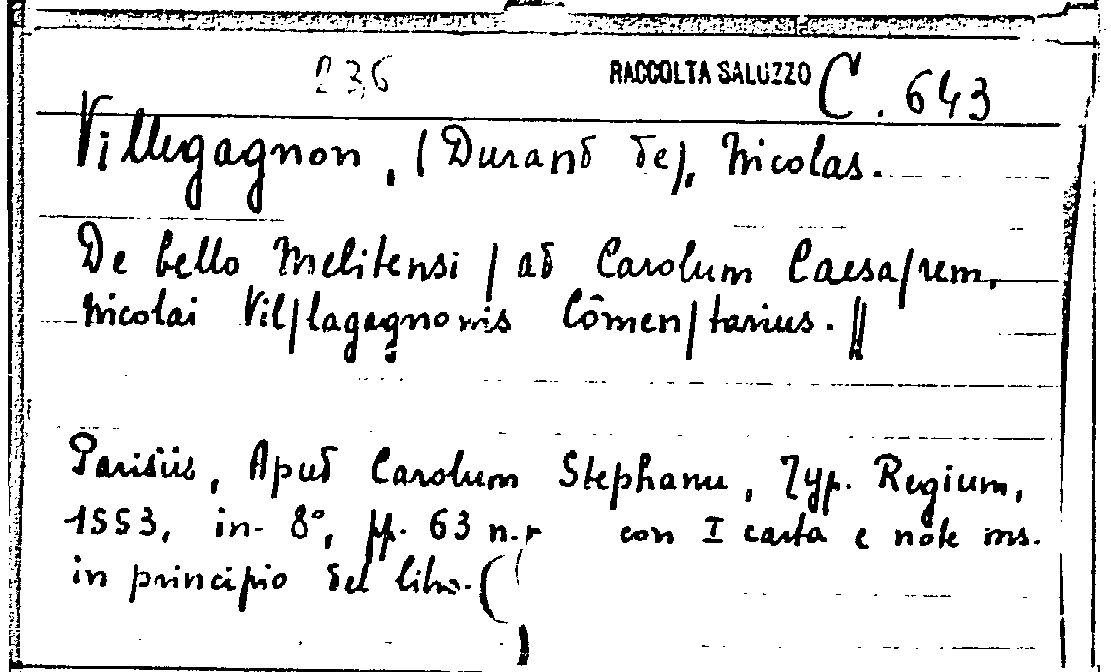 236 RACCOLTA SALUZZO C. 643
Villegagnon, (Durand de), Nicolas.
De bello Melitensi / ad Carolum Caesa/rem,
Nicolai Vil/lagagnonis Cômen/tarius. //
Parisiis, Apud Carolum Stephanu, Typ. Regium,
1553, in-8°, pp. 63 n. con I carta e note ms.
in principio del libro.